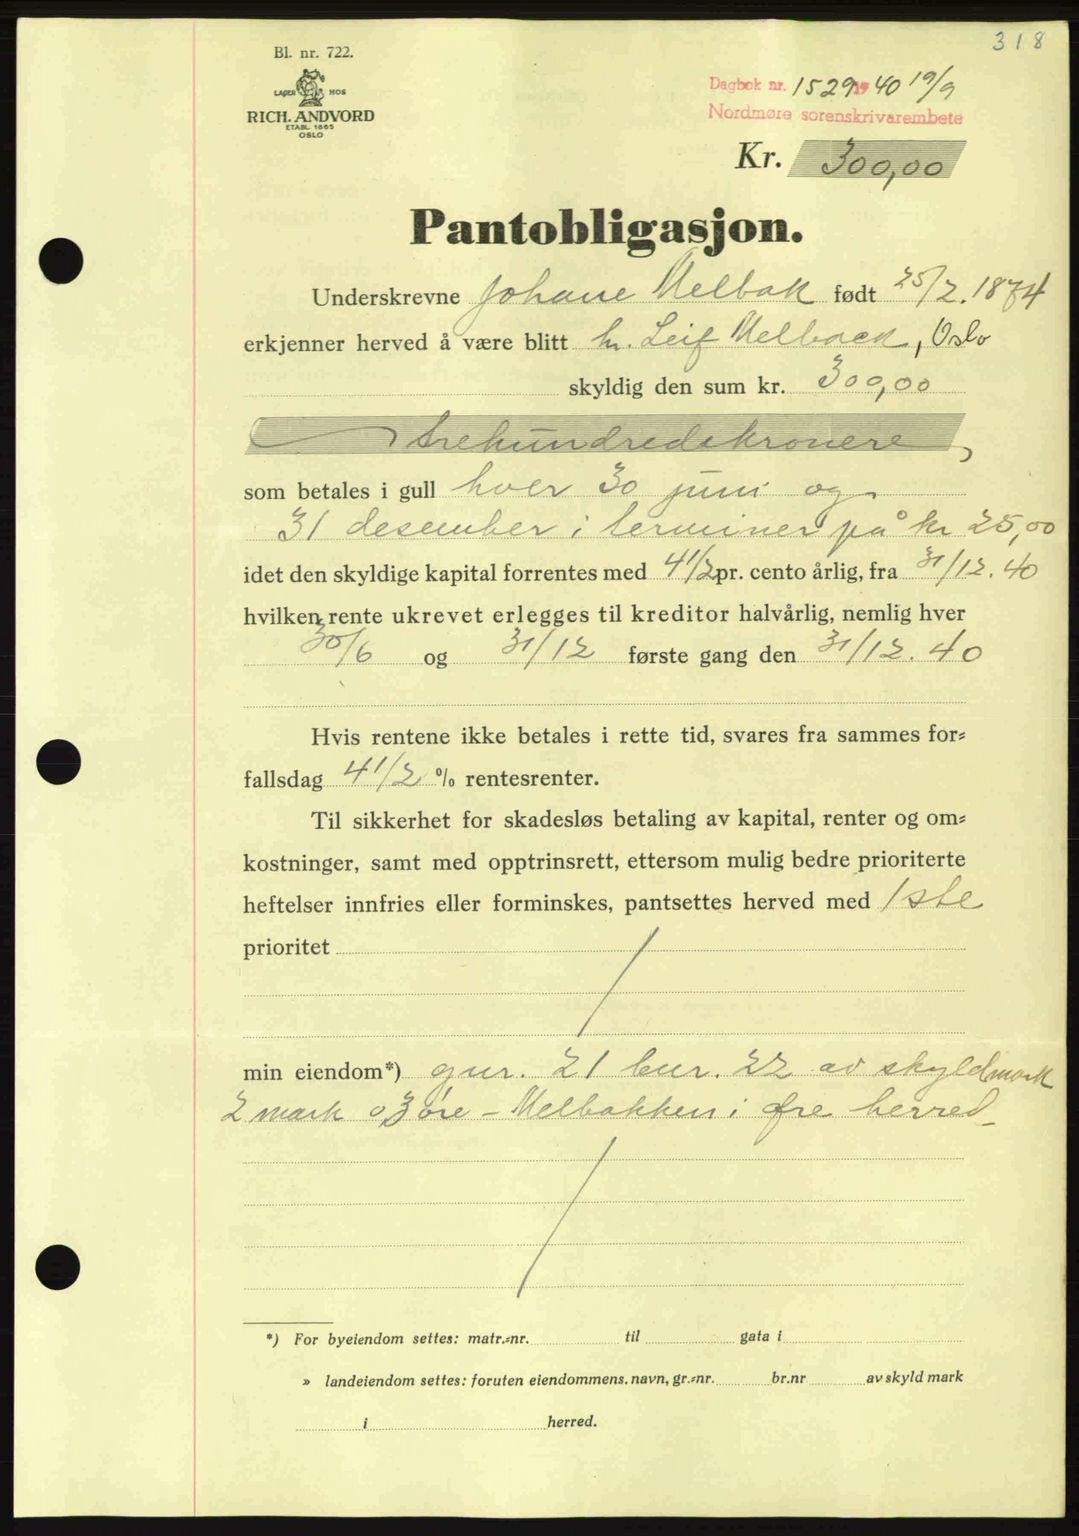 318
Bl. nr. 722.
LAGER HOS
RICH. ANDVORD
ETABL. 1865
OSLO
Dagbok nr. 1529 1940 19/9
Nordmøre sorenskrivarembete
Kr. 300,00
Pantobligasjon.
Underskrevne Johane Melbak født 25/2. 1874
erkjenner herved å være blitt hr. Leif Melback, Oslo
skyldig den sum kr. 300,00
trehundredekronere
som betales i gull hver 30 juni og
31 desember i terminer på kr 25,00
idet den skyldige kapital forrentes med 4 1/2 pr. cento årlig, fra 31/12. 40
hvilken rente ukrevet erlegges til kreditor halvårlig, nemlig hver
30/6 og 31/12 første gang den 31/12. 40
Hvis rentene ikke betales i rette tid, svares fra sammes for=
fallsdag 4 1/2 % rentesrenter.
Til sikkerhet for skadesløs betaling av kapital, renter og om=
kostninger, samt med opptrinsrett, ettersom mulig bedre prioriterte
heftelser innfries eller forminskes, pantsettes herved med 1ste
prioritet
min eiendom*) gnr. 21 bnr. 22 av skyldmark
2 mark o 3 øre - Melbakken i Øre herred
*) For byeiendom settes: matr.=nr. til gata i
» landeiendom settes: foruten eiendommens. navn, gr.=nr. br.nr av skyld mark
i herred.